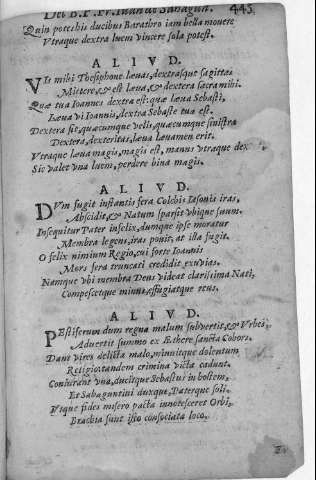 443
Dei B. P. Fr.
Quin potestis ducibus Barathro iam bella mouere
Vtraque dextra luem vincere sola potest.
ALIVD.
VIs mihi Thesiphone læuas, dextrasque sagittas
Mittere, & est læua, & dextera sacra mihi.
Quæ tua Ioannes dextra est: quæ læua Sebasti,
Læua vi Ioannis, dextra Sebaste tua est.
Dextera sit, quæcumque velis, quæcumque sinistra
Dextera, dexteritas, læua leuamen erit.
Vtraque læua magis, magis est, manus vtraque
Sic valet vna luem, perdere bina magis.
ALIVD.
DVm fugit instantis fera Colchis Iasonis iras,
Abscidit, & Natum sparsit vbique suum.
Insequitur Pater infelix, dumque ipse moratur
Membra legens, iras ponit, at illa fugit.
O felix nimium Regio, cui forte Ioannis
Mors fera truncati credidit exuvias.
Namque vbi membra Deus videat clarissima Nati,
Compescetque minas, effugiatque reus.
ALIVD.
PEstiferum dum regna malum subvertit, & Vrbes,
Advertit summo ex Æthere sancta Cohors.
Dant vires delicta malo, minuitque dolentum
Religio: tandem crimina victa cadunt.
Coniurant vna, ducitque Sebastus in hostem,
Et Sabaguntini duxque, Paterque soli.
Vtque fides misero pacta innotesceret Orbi,
Brachia sunt isto consociata loco.